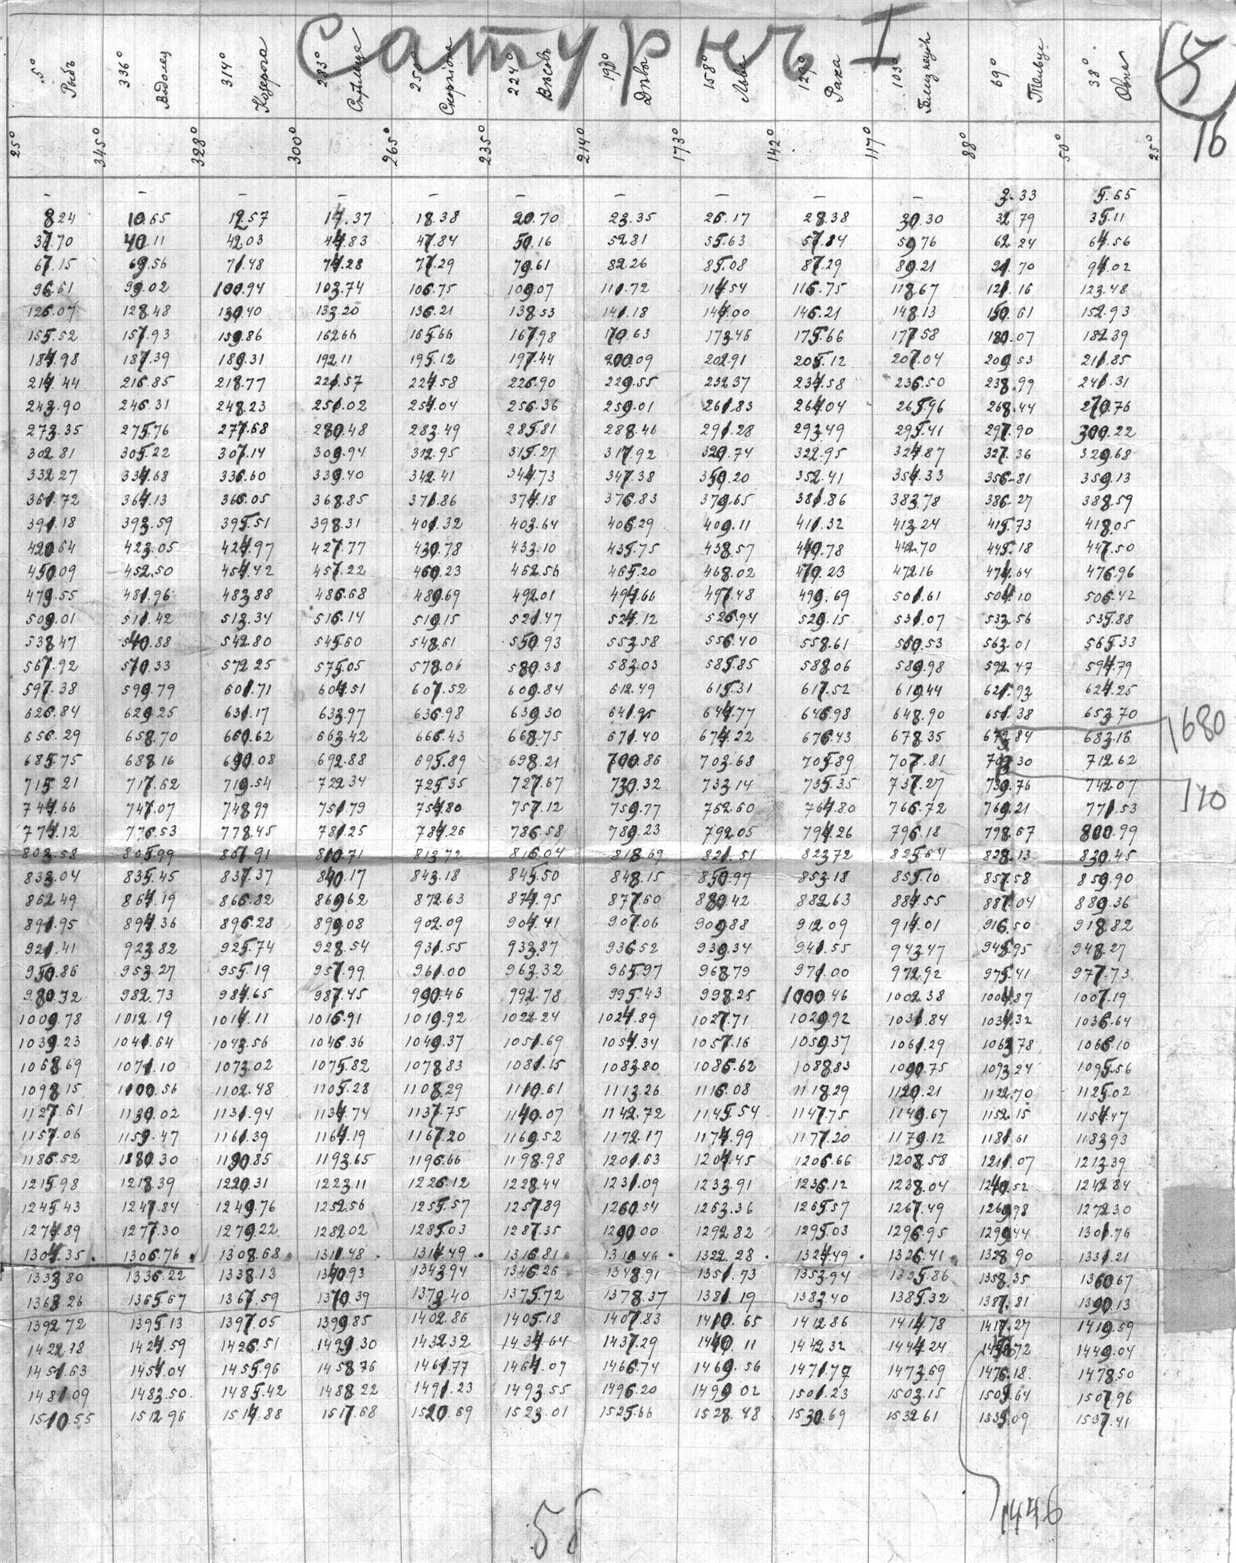 Сатурнъ I
5
16
5° Рыбъ 336° Водолея 314° Козерога 283° Стрельца 250° Скорпіона 224° Вѣсовъ 193° Дѣвы 158° Льва 129° Рака 103° Близнецовъ 69° Тельца 38° Овна
25° 345° 328° 300° 265° 235° 214° 173° 142° 117° 88° 50° 25°
– – – – – – – – – – 3.33 5.65
8.24 10.65 12.57 15.37 18.38 20.70 23.35 26.17 28.38 30.30 32.79 35.11
37.70 40.11 42.03 44.83 47.84 50.16 52.81 55.63 57.84 59.76 62.24 64.56
67.15 69.56 71.48 74.28 77.29 79.61 82.26 85.08 87.29 89.21 91.70 94.02
96.61 99.02 100.94 103.74 106.75 109.07 111.72 114.54 116.75 118.67 121.16 123.48
126.07 128.48 130.40 133.20 136.21 138.53 141.18 144.00 146.21 148.13 150.61 152.93
155.52 157.93 159.86 162.66 165.66 167.98 170.63 173.46 175.66 177.58 180.07 182.39
184.98 187.39 189.31 192.11 195.12 197.44 200.09 202.91 205.12 207.04 209.53 211.85
214.44 216.85 218.77 221.57 224.58 226.90 229.55 232.37 234.58 236.50 238.99 241.31
243.90 246.31 248.23 251.02 254.04 256.36 259.01 261.83 264.04 265.96 268.44 270.76
273.35 275.76 277.68 280.48 283.49 285.81 288.46 291.28 293.49 295.41 297.90 300.22
302.81 305.22 307.14 309.94 312.95 315.27 317.92 320.74 322.95 324.87 327.36 329.68
332.27 334.68 336.60 339.40 342.41 344.73 347.38 350.20 352.41 354.33 356.81 359.13
361.72 364.13 366.05 368.85 371.86 374.18 376.83 379.65 381.86 383.78 386.27 388.59
391.18 393.59 395.51 398.31 401.32 403.64 406.29 409.11 411.32 413.24 415.73 418.05
420.64 423.05 424.97 427.77 430.78 433.10 435.75 438.57 440.78 442.70 445.18 447.50
450.09 452.50 454.42 457.22 460.23 462.56 465.20 468.02 470.23 472.16 474.64 476.96
479.55 481.96 483.88 486.68 489.69 492.01 494.66 497.48 499.69 501.61 504.10 506.42
509.01 511.42 513.34 516.14 519.15 521.47 524.12 526.94 529.15 531.07 533.56 535.88
538.47 540.88 542.80 545.60 548.61 550.93 553.58 556.40 558.61 560.53 563.01 565.33
567.92 570.33 572.25 575.05 578.06 580.38 583.03 585.85 588.06 589.98 592.47 594.79
597.38 599.79 601.71 604.51 607.52 609.84 612.49 615.31 617.52 619.44 621.92 624.25
626.84 629.25 631.17 633.97 636.98 639.30 641.95 644.77 646.98 648.90 651.38 653.70
656.29 658.70 660.62 663.42 666.43 668.75 671.40 674.22 676.43 678.35 673.84 683.16
1680
685.75 688.16 690.08 692.88 695.89 698.21 700.86 703.68 705.89 707.81 703.30 712.62
715.21 717.62 719.54 722.34 725.35 727.67 730.32 733.14 735.35 737.27 739.76 742.07
110
744.66 747.07 748.99 751.79 754.80 757.12 759.77 762.60 764.80 766.72 769.21 771.53
774.12 776.53 778.45 781.25 784.26 786.58 789.23 792.05 794.26 796.18 798.67 800.99
803.58 805.99 807.91 810.71 813.72 816.04 818.69 821.51 823.72 825.64 828.13 830.45
833.04 835.45 837.37 840.17 843.18 845.50 848.15 850.97 853.18 855.10 857.58 859.90
862.49 864.19 866.82 869.62 872.63 874.95 877.60 880.42 882.63 884.55 887.04 889.36
891.95 894.36 896.28 899.08 902.09 904.41 907.06 909.88 912.09 914.01 916.50 918.82
921.41 923.82 925.74 928.54 931.55 933.87 936.52 939.34 941.55 943.47 945.95 948.27
950.86 953.27 955.19 957.99 961.00 963.32 965.97 968.79 971.00 972.92 975.41 977.73
980.32 982.73 984.65 987.45 990.46 992.78 995.43 998.25 1000.46 1002.38 1004.87 1007.19
1009.78 1012.19 1014.11 1016.91 1019.92 1022.24 1024.89 1027.71 1029.92 1031.84 1034.32 1036.64
1039.23 1041.64 1043.56 1046.36 1049.37 1051.69 1054.34 1057.16 1059.37 1061.29 1063.78 1066.10
1068.69 1071.10 1073.02 1075.82 1078.83 1081.15 1083.80 1086.62 1088.83 1090.75 1093.24 1095.56
1098.15 1100.56 1102.48 1105.28 1108.29 1110.61 1113.26 1116.08 1118.29 1120.21 1122.70 1125.02
1127.61 1130.02 1131.94 1134.74 1137.75 1140.07 1142.72 1145.54 1147.75 1149.67 1152.15 1154.47
1157.06 1159.47 1161.39 1164.19 1167.20 1169.52 1172.17 1174.99 1177.20 1179.12 1181.61 1183.93
1186.52 1880.30 1190.85 1193.65 1196.66 1198.98 1201.63 1204.45 1206.66 1208.58 1211.07 1213.39
1215.98 1218.39 1220.31 1223.11 1226.12 1228.44 1231.09 1233.91 1236.12 1238.04 1240.52 1242.84
1245.43 1247.84 1249.76 1252.56 1255.57 1257.89 1260.54 1263.36 1265.57 1267.49 1269.98 1272.30
1274.89 1277.30 1279.22 1282.02 1285.03 1287.35 1290.00 1292.82 1295.03 1296.95 1299.44 1301.76
1304.35 1306.76 1308.68 1311.48 1314.49 1316.81 1319.46 1322.28 1324.49 1326.41 1328.90 1331.21
1333.80 1336.22 1338.13 1340.93 1343.94 1346.26 1348.91 1351.73 1353.94 1355.86 1358.35 1360.67
1363.26 1365.67 1367.59 1370.39 1373.40 1375.72 1378.37 1381.19 1383.40 1385.32 1387.81 1390.13
1392.72 1395.13 1397.05 1399.85 1402.86 1405.18 1407.83 1410.65 1412.86 1414.78 1417.27 1419.59
1422.18 1424.59 1426.51 1429.30 1432.32 1434.64 1437.29 1440.11 1442.32 1444.24 1446.72 1449.04
1451.63 1454.04 1455.96 1458.76 1461.77 1464.09 1466.74 1469.56 1471.77 1473.69 1476.18 1478.50
1481.09 1483.50 1485.42 1488.22 1491.23 1493.55 1496.20 1499.02 1501.23 1503.15 1505.64 1507.96
1510.55 1512.96 1514.88 1517.68 1520.69 1523.01 1525.66 1528.48 1530.69 1532.61 1535.09 1537.41
1446